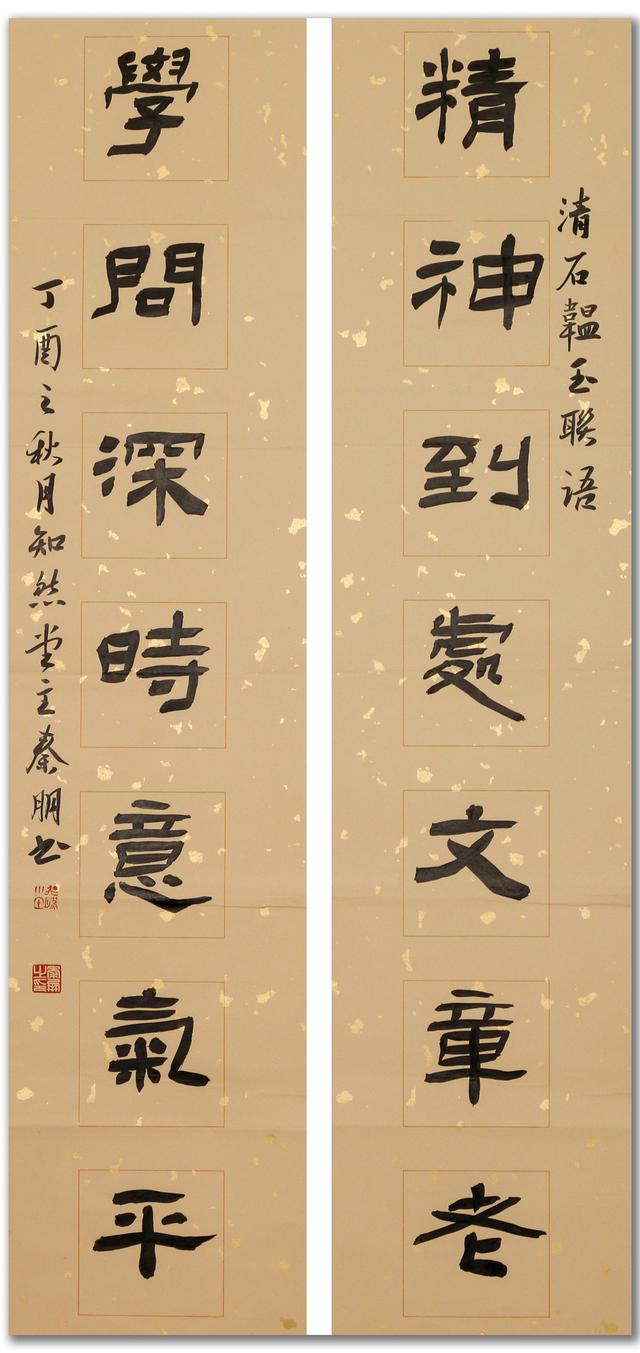 清石韞玉联语
精神到處文章老
學問深時意氣平
丁酉之秋月知然堂主秦朋书